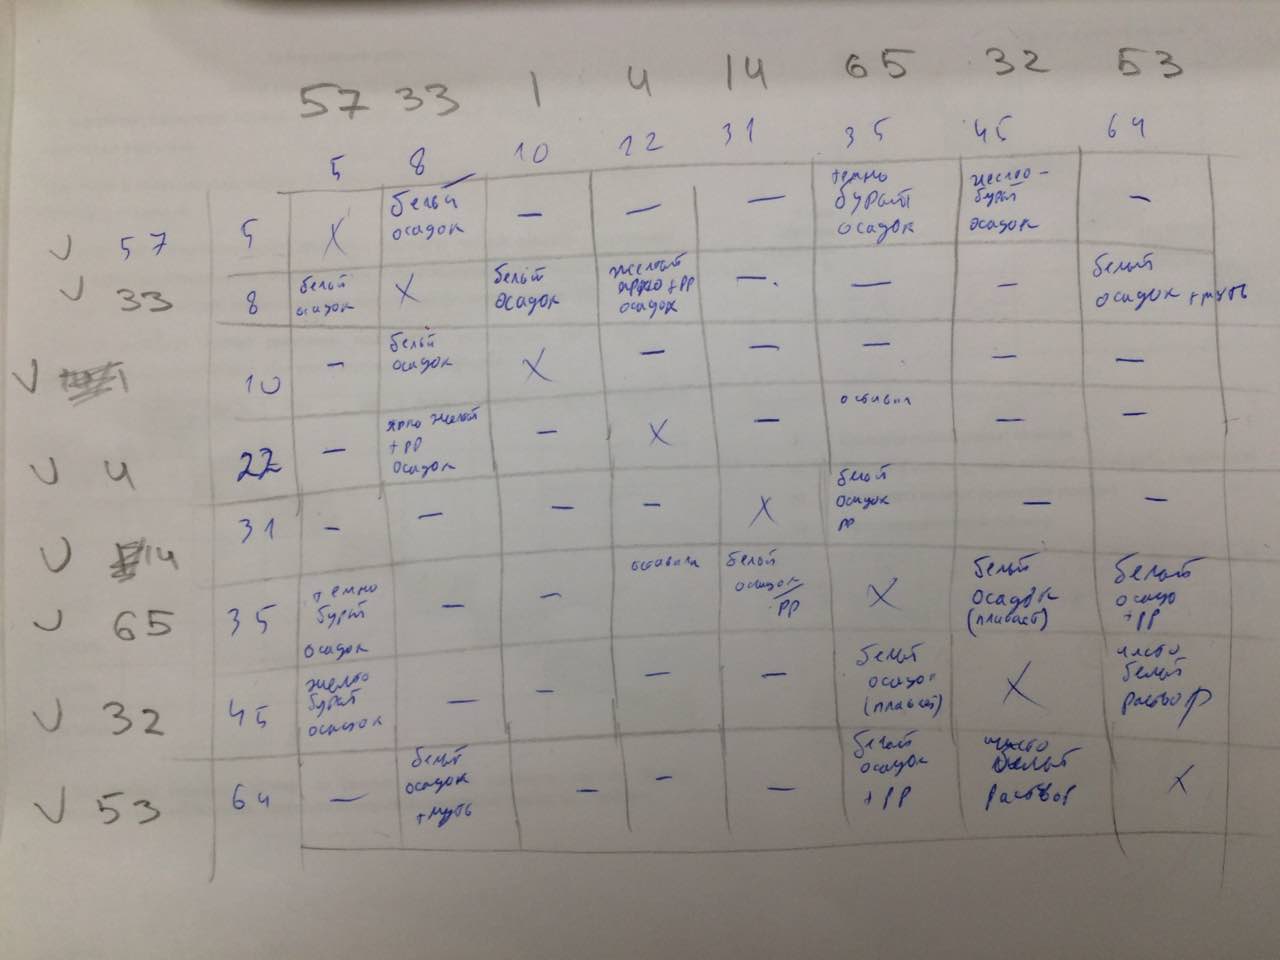 57 33 1 4 14 65 32 53
5 8 10 22 31 35 45 64
V 57 5 X белый осадок — — — темно бурый осадок желто-бурый осадок —
V 33 8 белый осадок X белый осадок желтый ярко + рр осадок — — — белый осадок + муть
V 1 10 — белый осадок X — — — — —
V 4 22 — ярко желтый + рр осадок — X — оставили — —
V 14 31 — — — — X белый осадок рр — —
V 65 35 темно бурый осадок — — оставили белый осадок / рр X белый осадок (плавает) белый осадо + рр
V 32 45 желто бурый осадок — — — — белый осадо (плавает) X чисто белый раствор
V 53 64 — белый осадок + муть — — — белый осадок + рр чисто белый раствор X